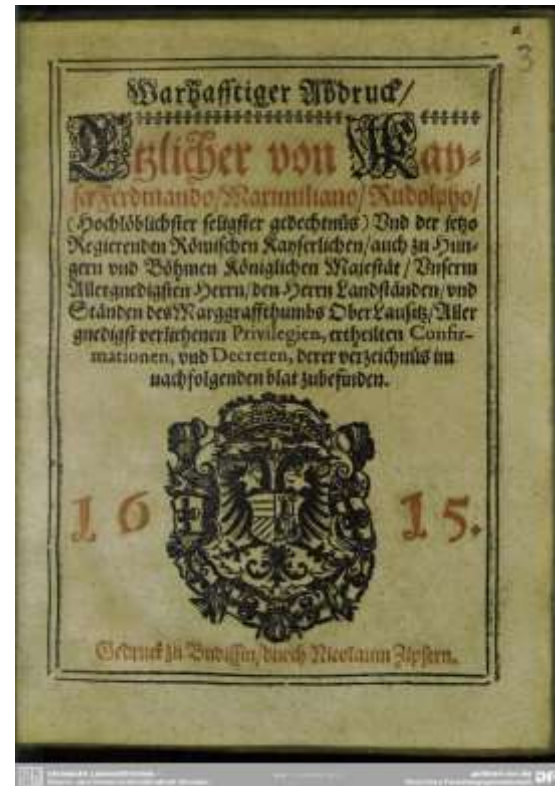 3
Warhafftiger Abdruck/
Etzlicher von Kay-
ser Ferdinando/Maximiliano/Rudolpho/
(Hochlöblichster seligster gedechtnüs) Vnd der jetzo
Regierenden Römischen Kayserlichen/auch zu Hun-
gern vnd Böhmen Königlichen Majestät/Vnserm
Allergnedigsten Herrn/den Herrn Landständen/vnd
Ständen des Marggraffthumbs OberLausitz/Aller
gnedigst verliehenen Privilegien, ertheilten Confir-
mationen, vnd Decreten, derer verzeichnüs im
nachfolgenden blat zubefinden.
1615.
Gedruckt zu Budissin/durch Nicolaum Zipsern.